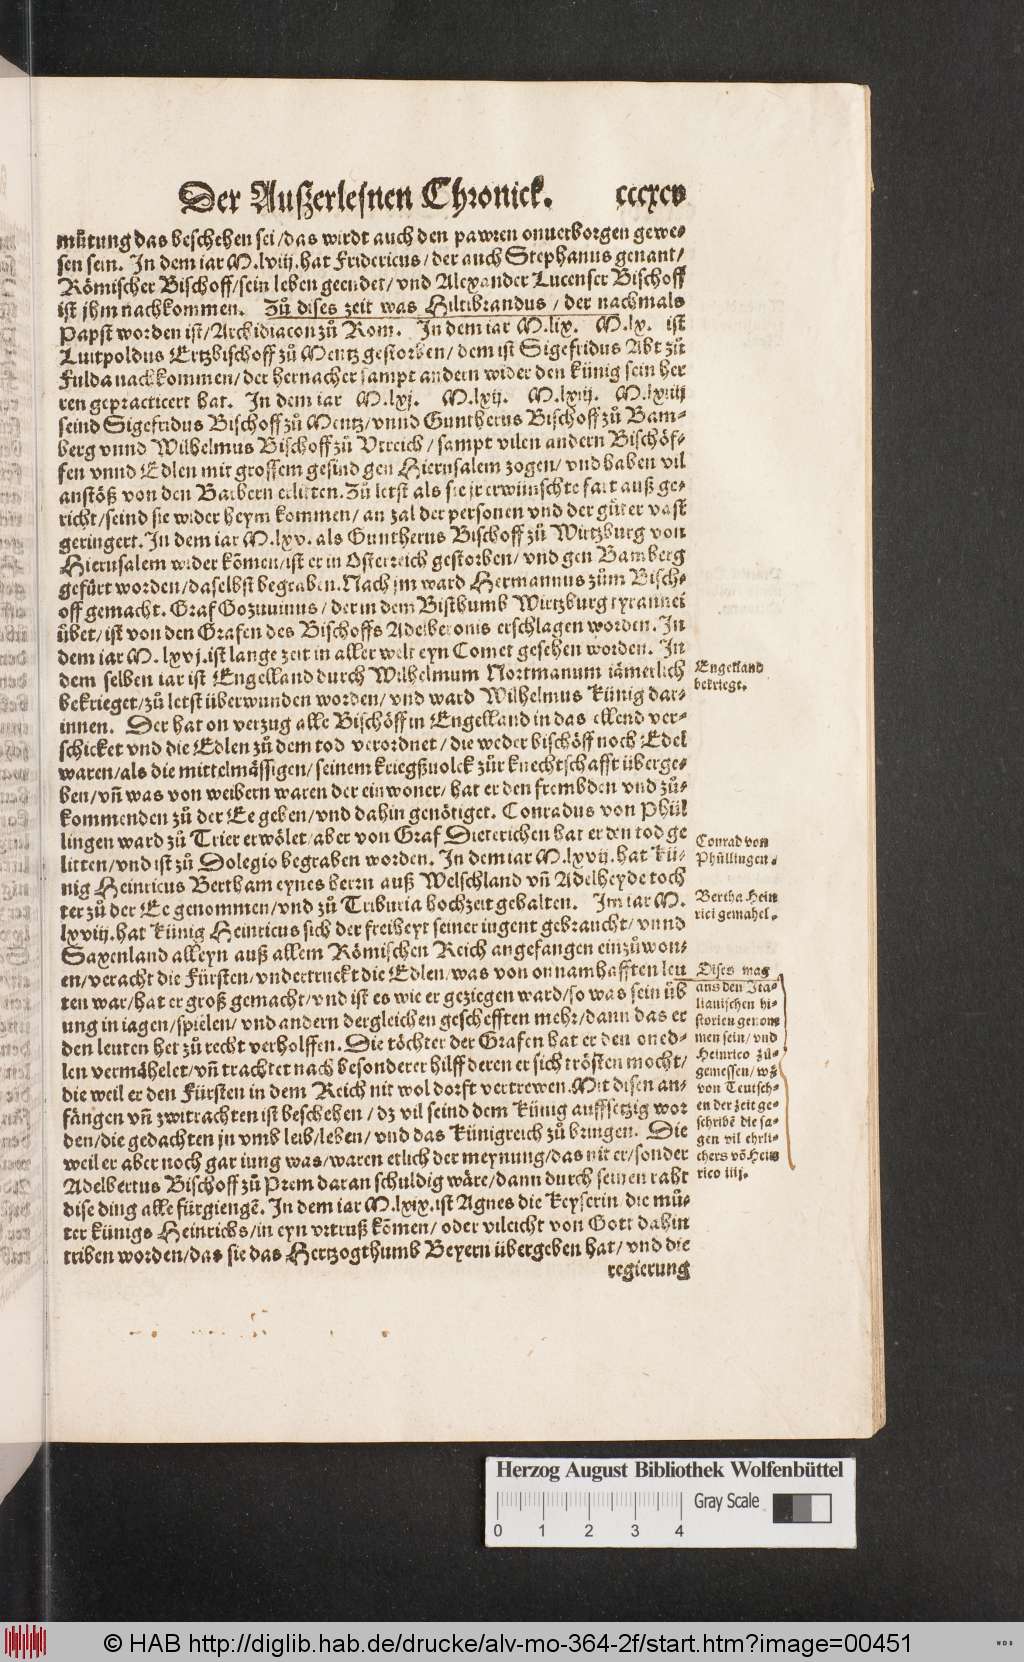 Der Außerlesnen Chronick. cccxcv
můtung das beschehen sei/das wirdt auch den pawren onuerborgen gewe-
sen sein. In dem iar M.lviij.hat Fridericus/der auch Stephanus genant/
Römischer Bischoff/sein leben geendet/vnd Alexander Lucenser Bischoff
ist jhm nachkommen. Zů dises zeit was Hiltibrandus/der nachmals
Papst worden ist/Archidiacon zů Rom. In dem iar M.lix. M.lx. ist
Luitpoldus Ertzbischoff zů Mentz gestorben/dem ist Sigefridus Abt zů
Fulda nachkommen/der hernacher sampt andern wider den künig sein her
ren gepracticert hat. In dem iar M.lxj. M.lxij. M.lxiij. M.lxiiij
seind Sigefridus Bischoff zů Mentz/vnnd Guntherus Bischoff zů Bam-
berg vnnd Wilhelmus Bischoff zů Vtreich/sampt vilen andern Bischöf-
fen vnnd Edlen mit grossem gesind gen Hierusalem zogen/vnd haben vil
anstöß von den Barbern erlitten.Zů letst als sie jr erwünschte fart auß ge-
richt/seind sie wider heym kommen/an zal der personen vnd der güter vast
geringert.In dem iar M.lxv.als Guntherus Bischoff zů Wirtzburg von
Hierusalem wider kōmen/ist er in Osterreich gestorben/vnd gen Bamberg
gefürt worden/daselbst begraben.Nach jm ward Hermannus zům Bisch-
off gemacht. Graf Gozuuinus/der in dem Bisthumb Wirtzburg tyrannei
übet/ist von den Grafen des Bischoffs Adelberonis erschlagen worden.In
dem iar M.lxvj.ist lange zeit in aller welt eyn Comet gesehen worden. In
dem selben iar ist Engelland durch Wilhelmum Nortmanum iämerlich
bekrieget/zů letst überwunden worden/vnd ward Wilhelmus künig dar-
innen. Der hat on verzug alle Bischöff in Engelland in das ellend ver-
schicket vnd die Edlen zů dem tod verordnet/die weder bischöff noch Edel
waren/als die mittelmässigen/seinem kriegßuolck zůr knechtschafft überge-
ben/vñ was von weibern waren der einwoner/hat er den frembden vnd zů-
kommenden zů der Ee geben/vnd dahin genötiget. Conradus von Phül
lingen ward zů Trier erwölet/aber von Graf Dieterichen hat er den tod ge
litten/vnd ist zů Dolegio begraben worden. In dem iar M.lxvij.hat kü-
nig Heinricus Bertham eynes herrn auß Welschland vñ Adelheyde toch
ter zů der Ee genommen/vnd zů Triburia hochzeit gehalten. Im iar M.
lxviij.hat künig Heinricus sich der freiheyt seiner iugent gebraucht/vnnd
Saxenland alleyn auß allem Römischen Reich angefangen einzůwon-
en/veracht die Fürsten/vndertruckt die Edlen/was von onnamhafften leu
ten war/hat er groß gemacht/vnd ist es wie er geziegen ward/so was sein üb
ung in iagen/spielen/vnd andern dergleichen geschefften mehr/dann das er
den leuten het zů recht verholffen.Die töchter der Grafen hat er den oned-
len vermähelet/vñ trachtet nach besonderer hilff deren er sich trösten mocht/
die weil er den Fürsten in dem Reich nit wol dorft vertrewen.Mit disen an-
fängen vñ zwitrachten ist beschehen/dz vil seind dem künig auffsetzig wor
den/die gedachten jn vmb leib/leben/vnd das künigreich zů bringen. Die
weil er aber noch gar iung was/waren etlich der meynung/das nit er/sonder
Adelbertus Bischoff zů Prem daran schuldig wäre/dann durch seinen raht
dise ding alle fürgiengē.In dem iar M.lxix.ist Agnes die keyserin die mů-
ter künigs Heinrichs/in eyn vrtruß kōmen/oder vileicht von Gott dahin
triben worden/das sie das Hertzogthumb Beyern übergeben hat/vnd die
regierung
Engelland
bekriegt.
Conrad von
Phüllingen.
Bertha Hein
rici gemahel.
Dises mag
aus den Ita-
lianischen hi-
storien genom
men sein/vnd
Heinrico zů-
gemessen/wz
von Teutsch-
en der zeit ge-
schribē die sa-
gen vil ehrli-
chers vō Hein
rico iiij.
Herzog August Bibliothek Wolfenbüttel
0 1 2 3 4
Gray Scale
© HAB http://diglib.hab.de/drucke/alv-mo-364-2f/start.htm?image=00451